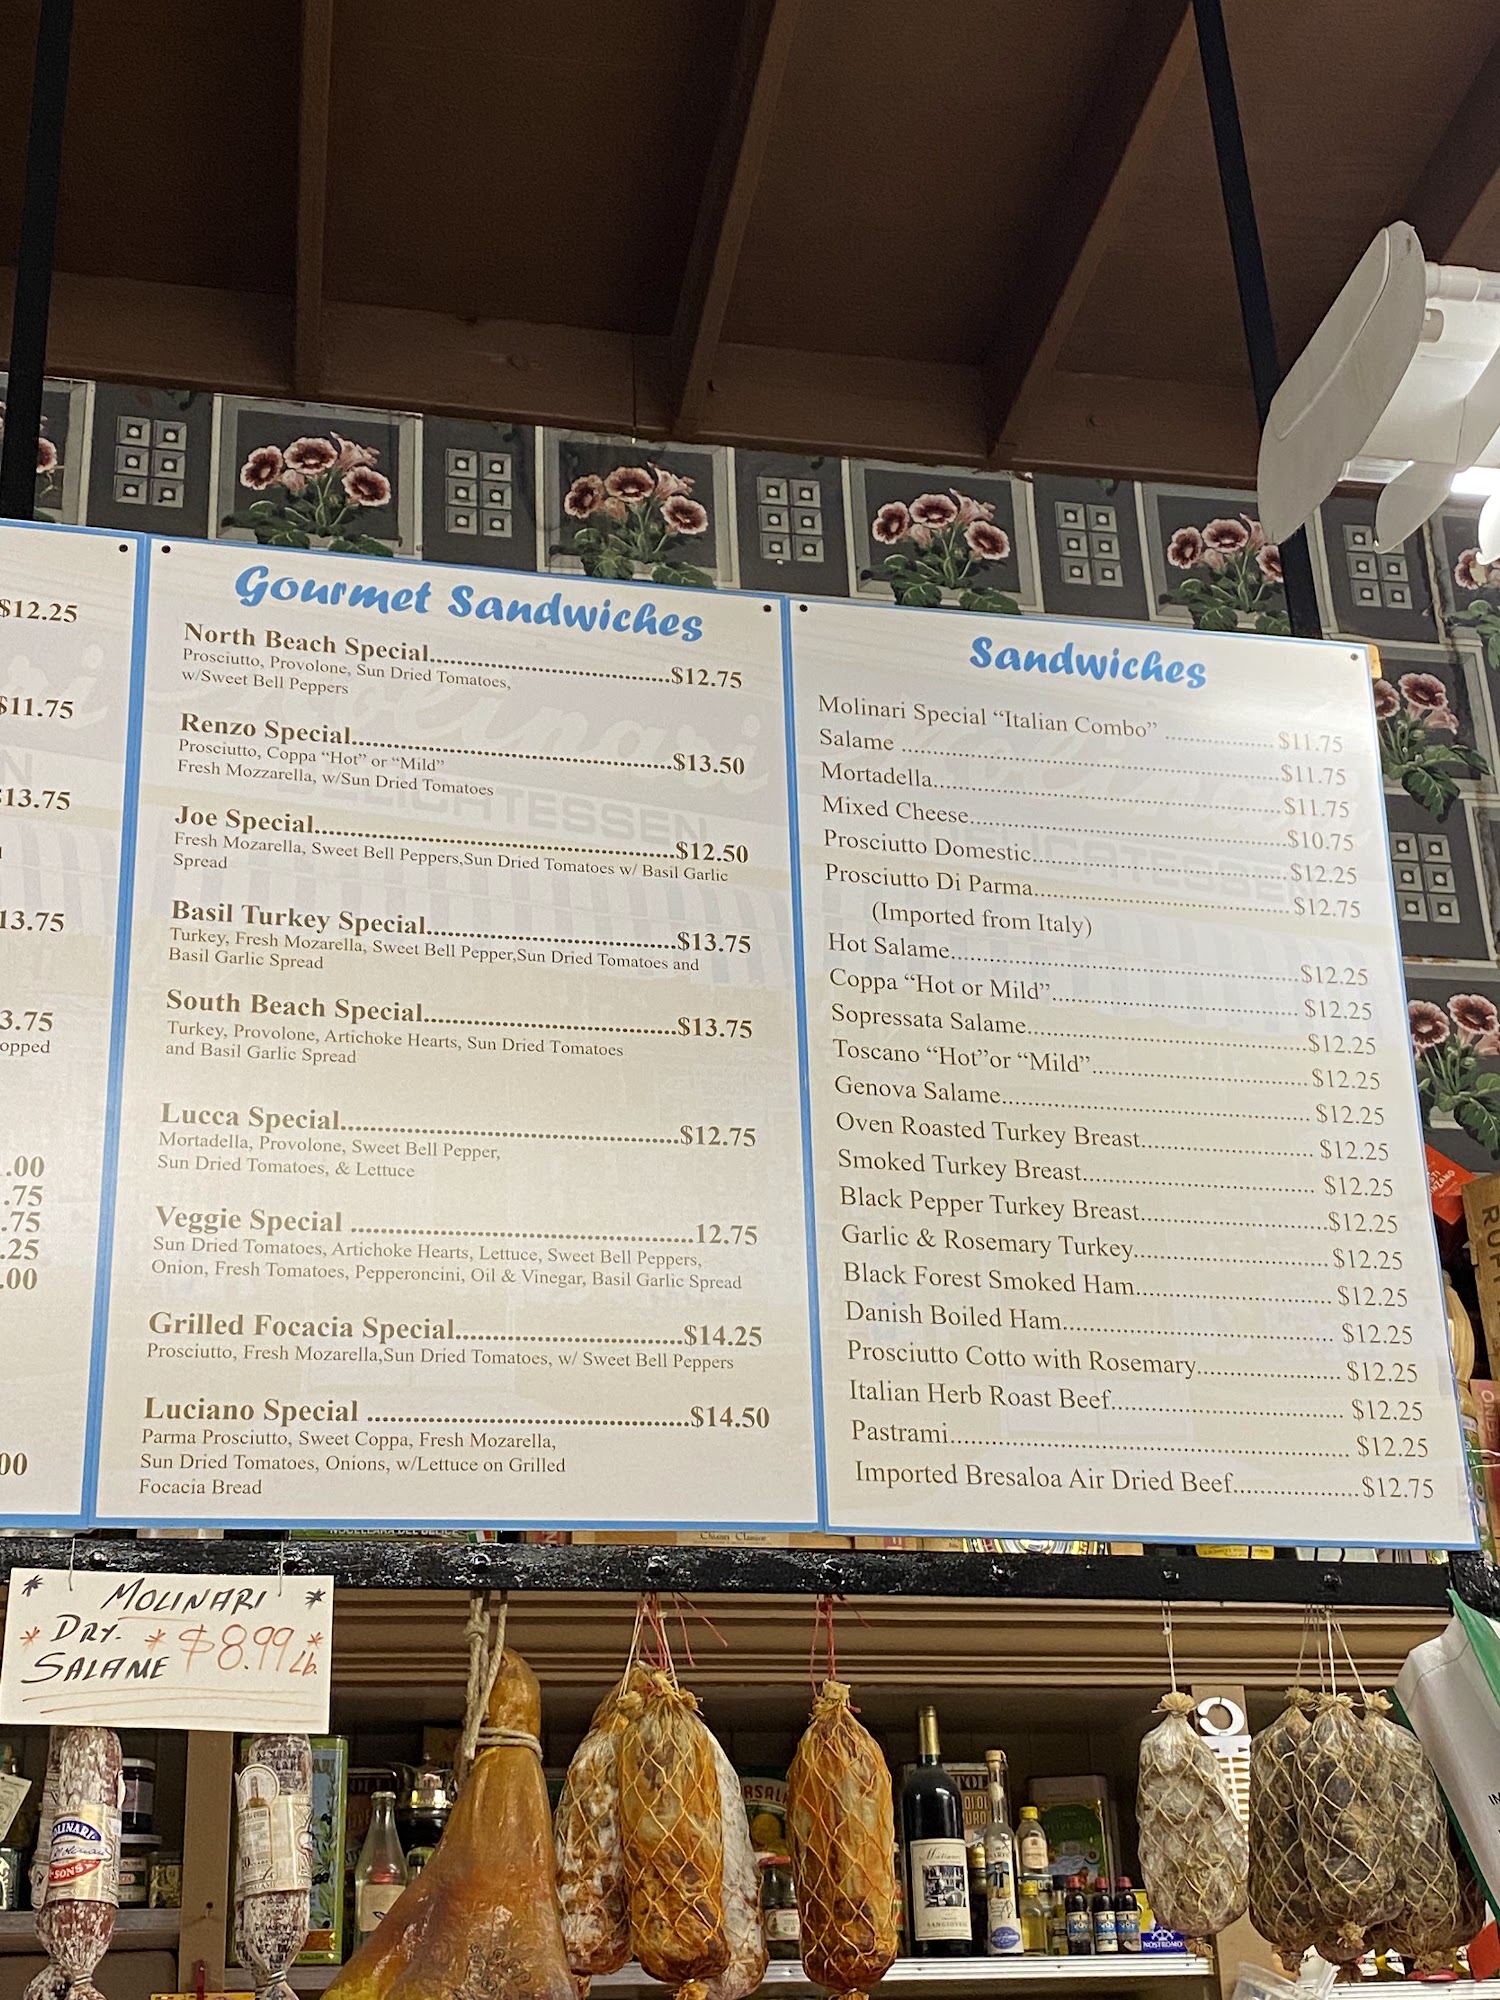 $12.25
$11.75
13.75
13.75
3.75
opped
.00
.75
.75
.25
.00
00
Gourmet Sandwiches
North Beach Special....$12.75
Prosciutto, Provolone, Sun Dried Tomatoes,
w/Sweet Bell Peppers
Renzo Special....$13.50
Prosciutto, Coppa “Hot” or “Mild”
Fresh Mozzarella, w/Sun Dried Tomatoes
Joe Special....$12.50
Fresh Mozarella, Sweet Bell Peppers,Sun Dried Tomatoes w/ Basil Garlic
Spread
Basil Turkey Special....$13.75
Turkey, Fresh Mozarella, Sweet Bell Pepper,Sun Dried Tomatoes and
Basil Garlic Spread
South Beach Special....$13.75
Turkey, Provolone, Artichoke Hearts, Sun Dried Tomatoes
and Basil Garlic Spread
Lucca Special....$12.75
Mortadella, Provolone, Sweet Bell Pepper,
Sun Dried Tomatoes, & Lettuce
Veggie Special ....12.75
Sun Dried Tomatoes, Artichoke Hearts, Lettuce, Sweet Bell Peppers,
Onion, Fresh Tomatoes, Pepperoncini, Oil & Vinegar, Basil Garlic Spread
Grilled Focacia Special....$14.25
Prosciutto, Fresh Mozarella,Sun Dried Tomatoes, w/ Sweet Bell Peppers
Luciano Special ....$14.50
Parma Prosciutto, Sweet Coppa, Fresh Mozarella,
Sun Dried Tomatoes, Onions, w/Lettuce on Grilled
Focacia Bread
Molinari
DELICATESSEN
Sandwiches
Molinari Special “Italian Combo” .... $11.75
Salame ....$11.75
Mortadella....$11.75
Mixed Cheese....$10.75
Prosciutto Domestic....$12.25
Prosciutto Di Parma....$12.75
(Imported from Italy)
Hot Salame....$12.25
Coppa “Hot or Mild”.... $12.25
Sopressata Salame....$12.25
Toscano “Hot”or “Mild”.... $12.25
Genova Salame.... $12.25
Oven Roasted Turkey Breast.... $12.25
Smoked Turkey Breast.... $12.25
Black Pepper Turkey Breast....$12.25
Garlic & Rosemary Turkey.... $12.25
Black Forest Smoked Ham.... $12.25
Danish Boiled Ham.... $12.25
Prosciutto Cotto with Rosemary.... $12.25
Italian Herb Roast Beef.... $12.25
Pastrami.... $12.25
Imported Bresaloa Air Dried Beef....$12.75
* MOLINARI *
* DRY. * $8.99 * Lb.
SALAME
NOSTROMO